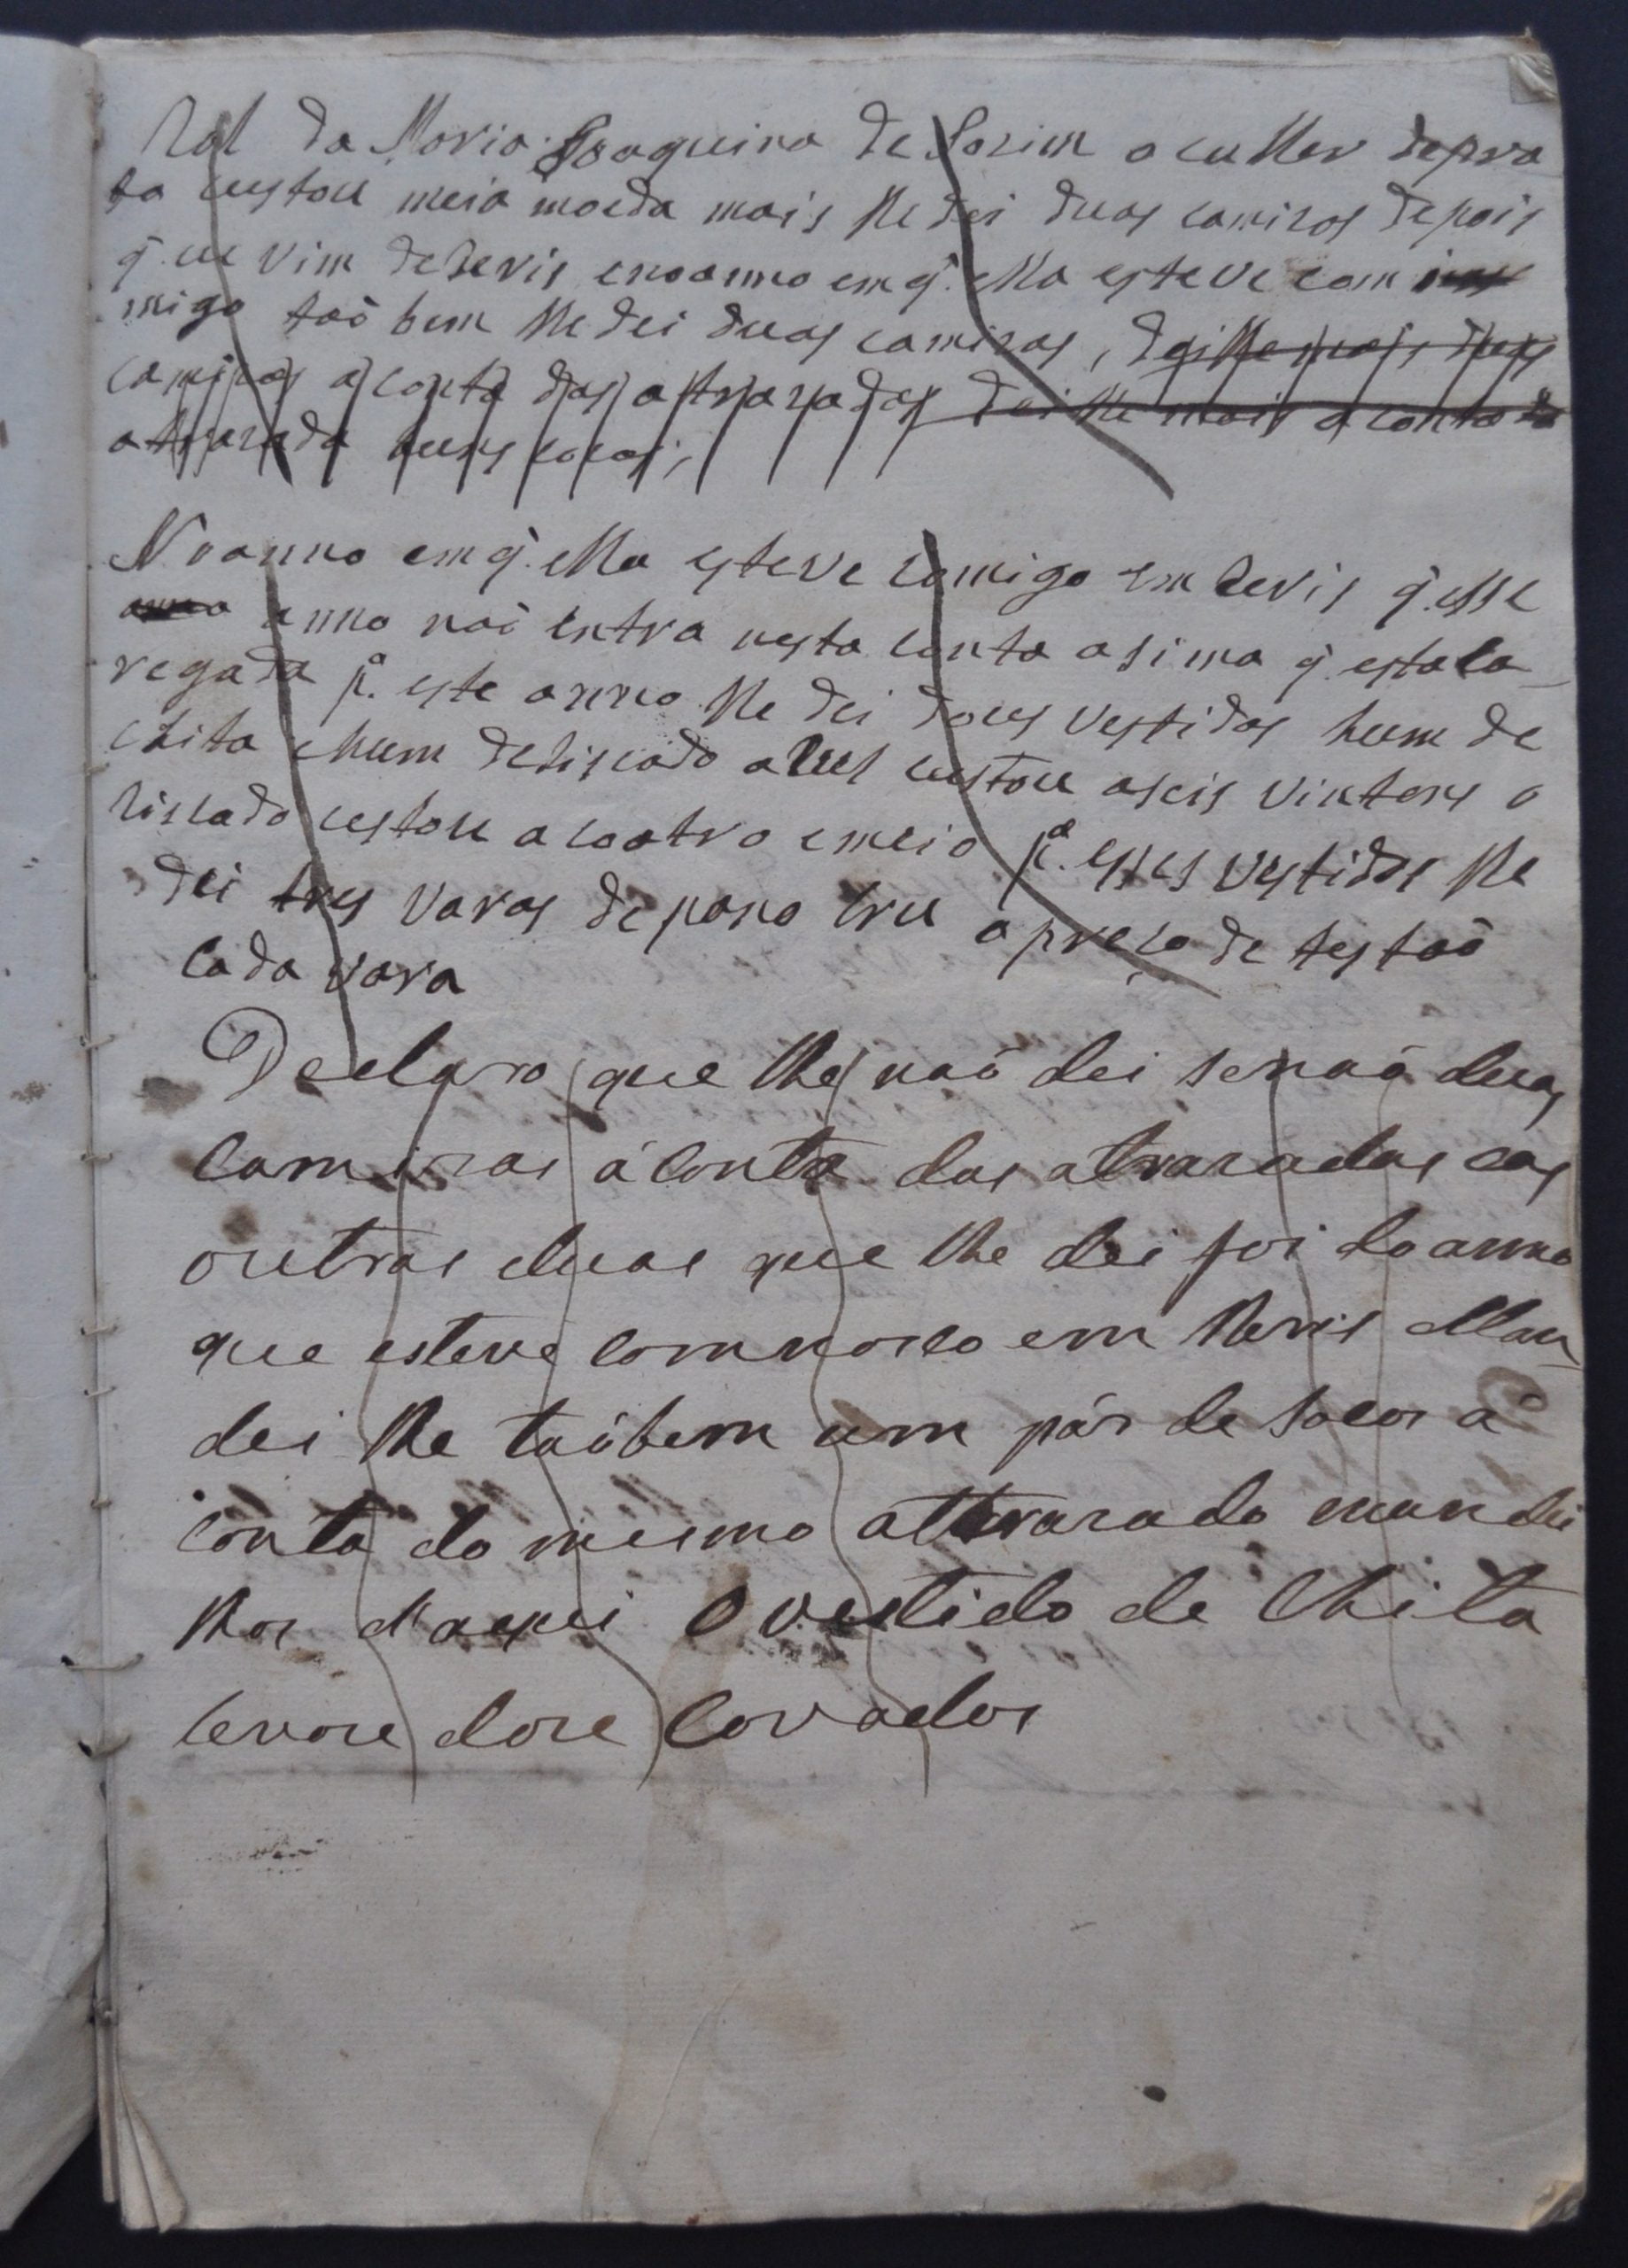 Rol da Maria Joaquina de Sozim a culher depra
ta custou meia moeda mais lhe dei duas camizas depois
q. eu vim deRevis enoanno em q. ella esteve com
migo taõ bem lhe dei duas camizas, deilhe mais duas
camizas a conta das atrazadas deilhe mais a conta da
atrazada huns socos;
Noanno em q. ella esteve comigo em Revis q. esse
anno naõ entra nesta conta asima q. esta ca
regada p.ª este anno lhe dei dous vestidos hum de
chita ehum deRiscado a custou aseis vintens o
Riscado custou a coatro emeio p.ª esses vestidos lhe
dei tres varas de pano cru a preço de testaõ
cada vara
Declaro que lhe naõ dei senaõ duas
camizas á conta das atrazadas eas
outras duas que lhe dei foi do anno
que esteve comnosco em Revis Man
dei lhe taõbem um pár de socos á
conta do mesmo attrazado mandei
lhos d'aqui O vestido de Chita
levou doze Covados